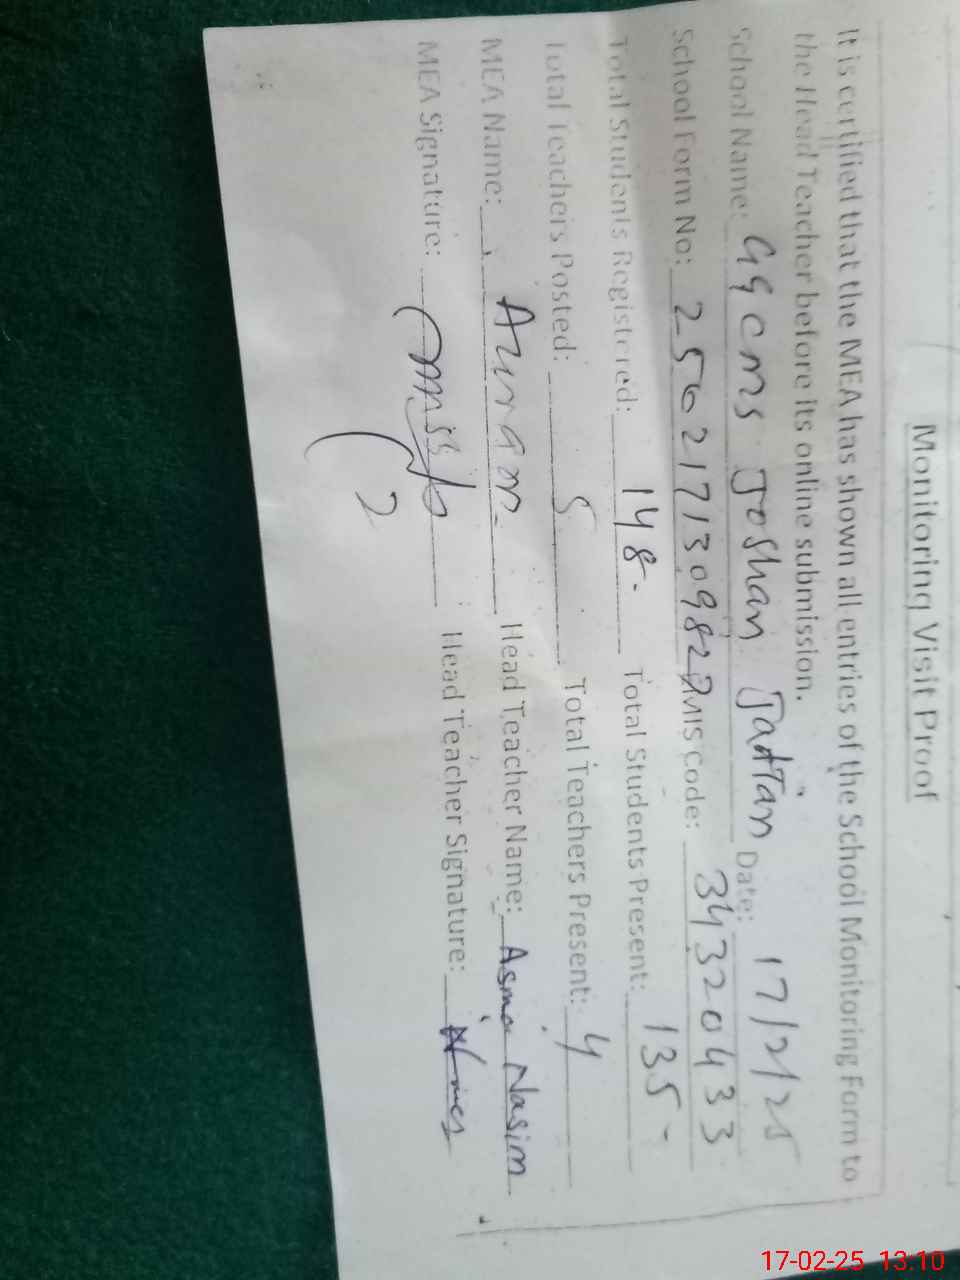 Monitoring Visit Proof
It is certified that the MEA has shown all entries of the School Monitoring Form to
the Head Teacher before its online submission.
School Name: GGCMS Joshan Jattan Date: 17/2/25
School Form No: 2502171309822 EMIS Code: 34320433
Total Students Registered: 148. Total Students Present: 135-
Total Teachers Posted: 5 Total Teachers Present: 4
MEA Name: Azram. Head Teacher Name: Asma Nasim
MEA Signature: Head Teacher Signature:
17-02-25 13:10